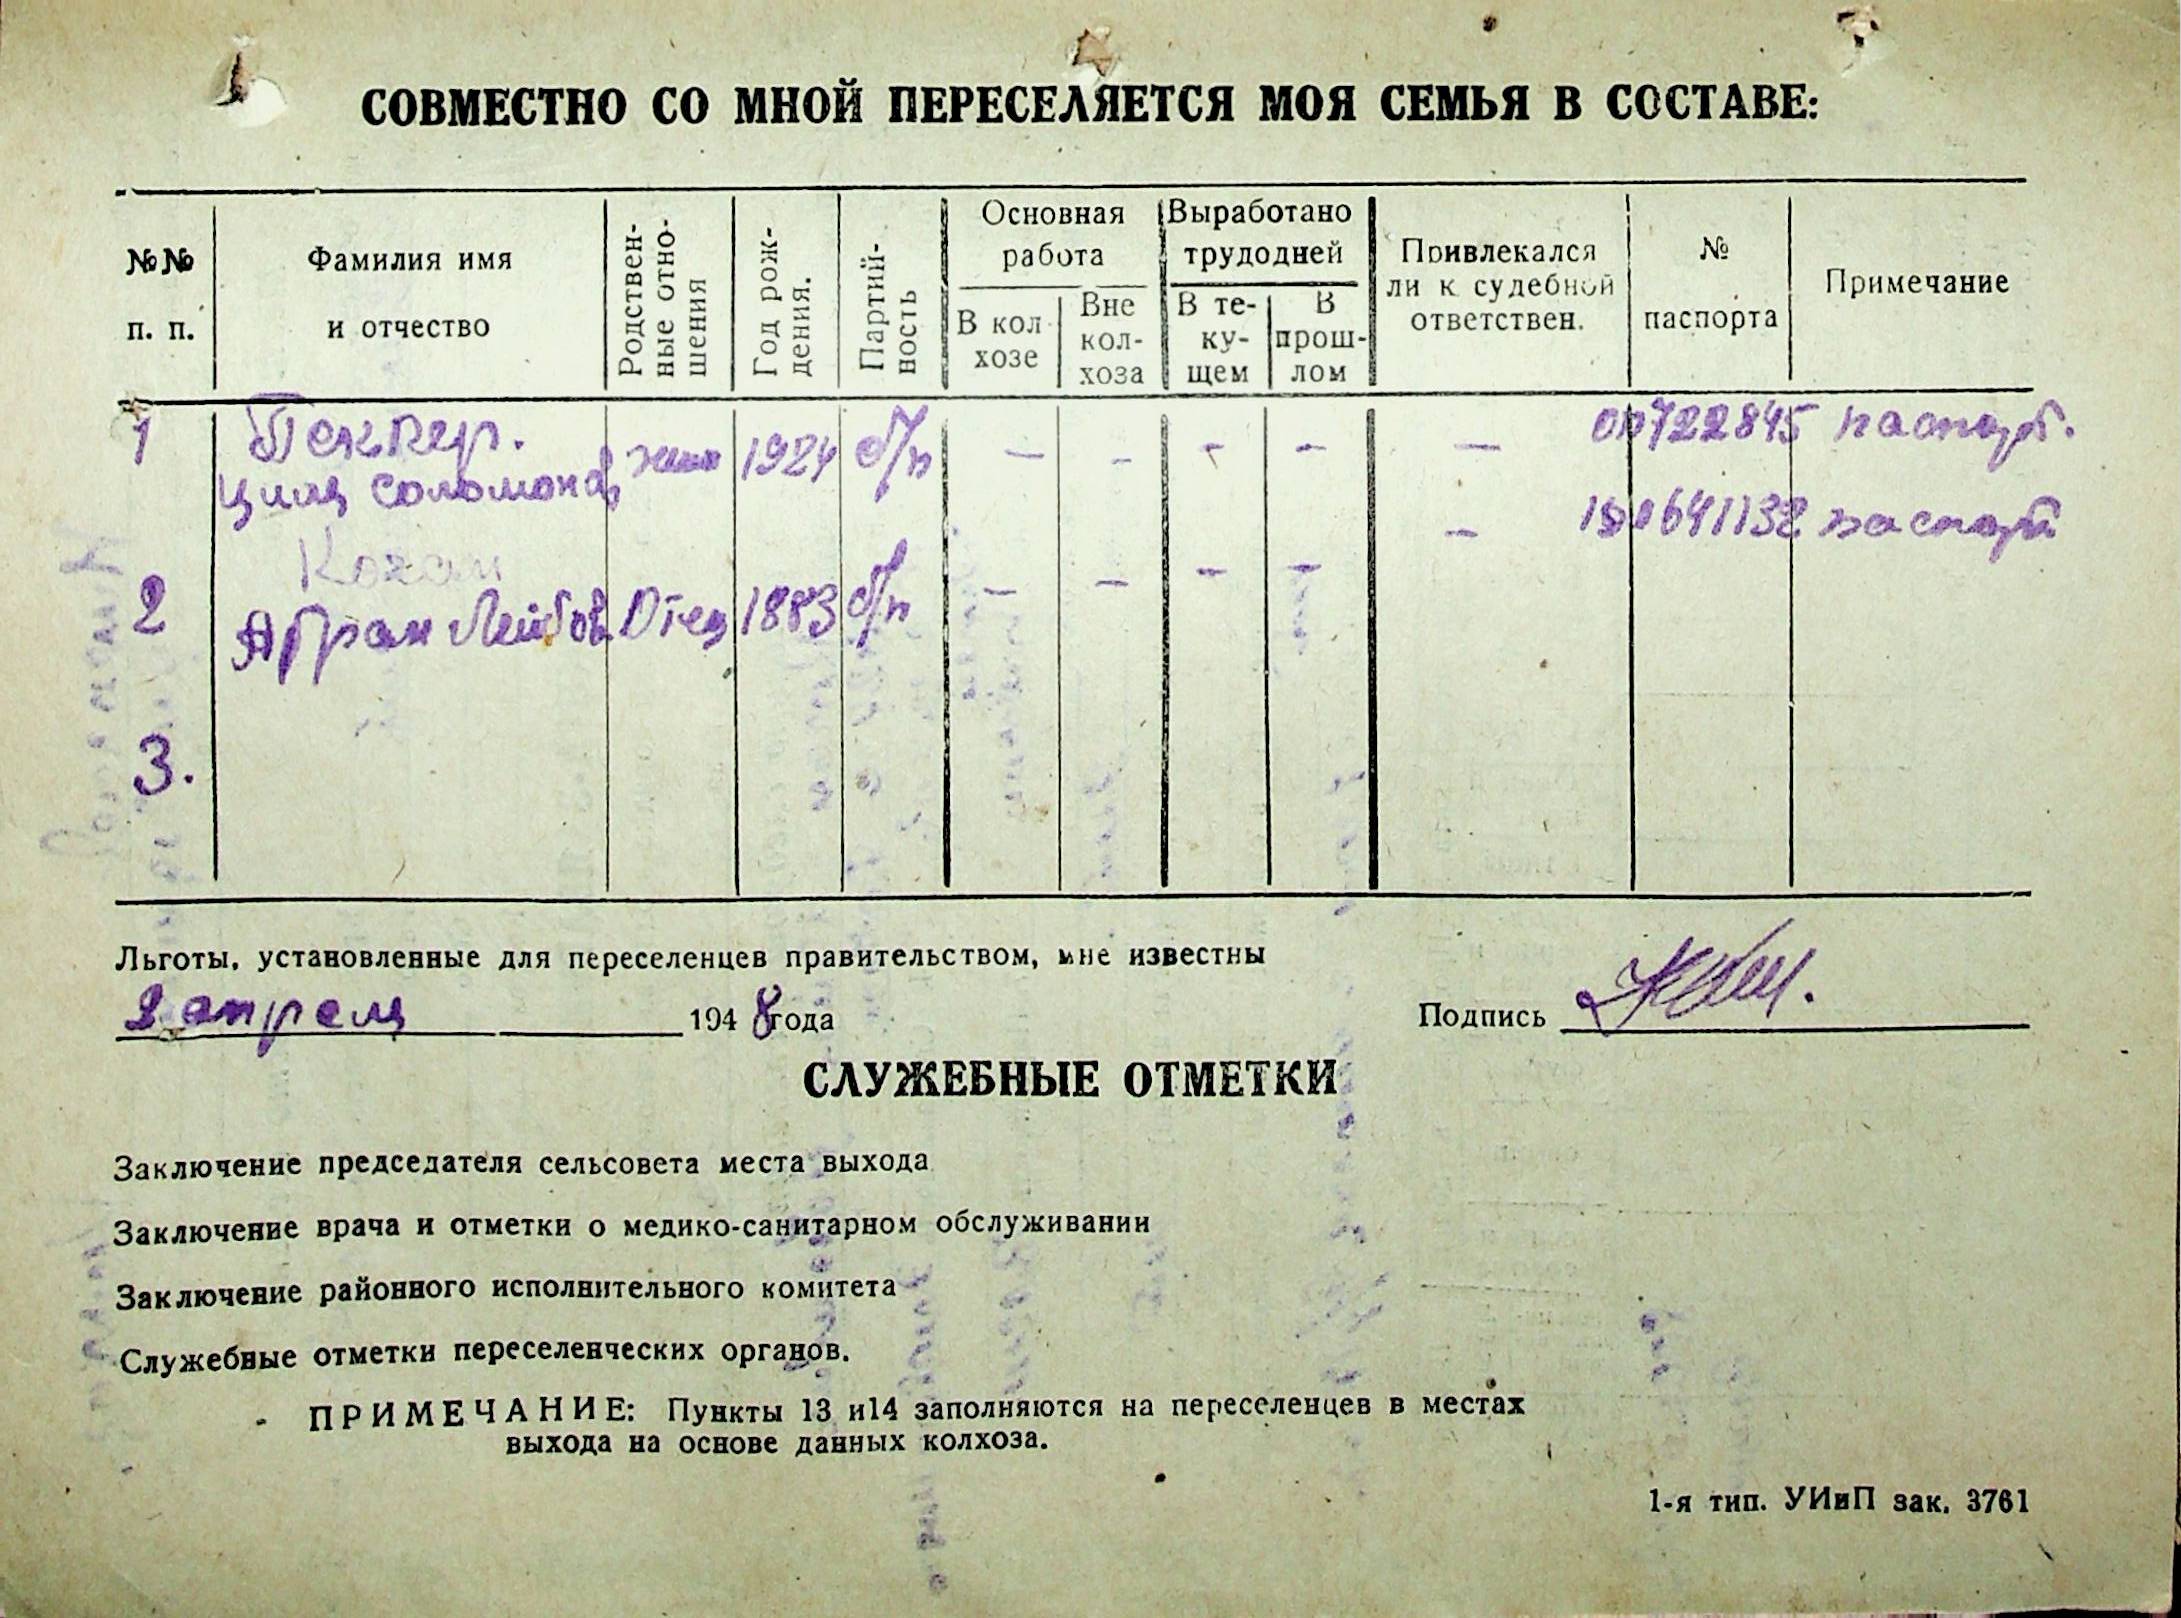 СОВМЕСТНО СО МНОЙ ПЕРЕСЕЛЯЕТСЯ МОЯ СЕМЬЯ В СОСТАВЕ:
№№ п. п.
Фамилия имя и отчество
Родствен-ные отно-шения
Год рож-дения.
Партий-ность
Основная работа
В кол-хозе
Вне кол-хоза
Выработано трудодней
В те-ку-щем
В прош-лом
Привлекался ли к судебной ответствен.
№ паспорта
Примечание
1 Пеккер. 1924 б/п – – – – – 722845 паспорт.
Циля Соломонов
2 Коган 641132 паспорт
Абрам Лейбов Отец 1883 б/п – – – – –
3.
Льготы, установленные для переселенцев правительством, мне известны
2 апреля 1948 года
Подпись
СЛУЖЕБНЫЕ ОТМЕТКИ
Заключение председателя сельсовета места выхода
Заключение врача и отметки о медико-санитарном обслуживании
Заключение районного исполнительного комитета
Служебные отметки переселенческих органов.
ПРИМЕЧАНИЕ: Пункты 13 и14 заполняются на переселенцев в местах
выхода на основе данных колхоза.
1-я тип. УИиП зак. 3761